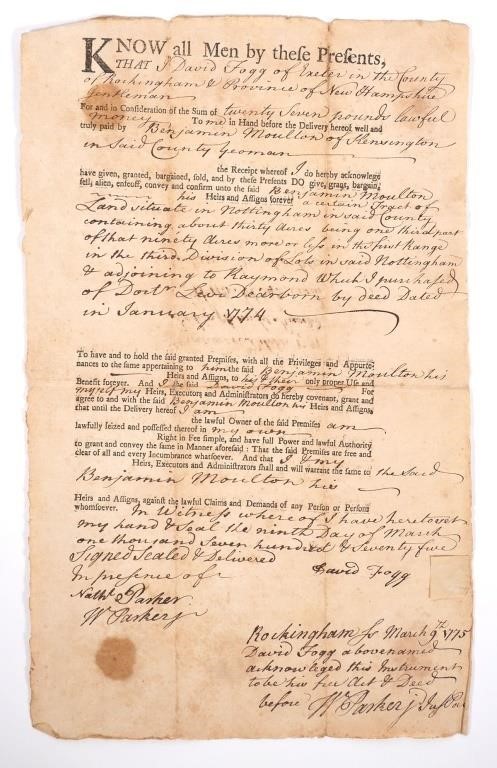 KNOW all Men by theſe Preſents,
THAT I David Fogg of Exeter in the County
of Rockingham & Province of New Hampshire
Gentleman
For and in Conſideration of the Sum of twenty Seven pounds lawful
money To me in Hand before the Delivery hereof well and
truly paid by Benjamin Moulton of Kensington
in Said County Yeoman
the Receipt whereof I do hereby acknowledge
have given, granted, bargained, ſold, and by theſe Preſents DO give, grant, bargain,
ſell, alien, enfeoff, convey and confirm unto the ſaid Benjamin Moulton
his Heirs and Aſſigns forever a certain Tract of
Land Situate in Nottingham in said County
containing about thirty Acres being one third part
of that ninety Acres more or less in the first Range
in the third Division of Lots in said Nottingham
& adjoining to Raymond which I purchased
of Doctr Levi Dearborn by deed Dated
in January 1774
To have and to hold the ſaid granted Premiſes, with all the Privileges and Appurte-
nances to the ſame appertaining to him the ſaid Benjamin Moulton his
Heirs and Aſſigns, to his & their only proper Uſe and
Benefit forever. And I the ſaid David Fogg For
myself my Heirs, Executors and Adminiſtrators do hereby covenant, grant and
agree to and with the ſaid Benjamin Moulton his Heirs and Aſſigns,
that until the Delivery hereof I am
the lawful Owner of the ſaid Premiſes am
lawfully ſeized and poſſeſſed thereof in my own
Right in Fee ſimple, and have full Power and lawful Authority
to grant and convey the ſame in Manner aforeſaid: That the ſaid Premiſes are free and
clear of all and every Incumbrance whatſoever. And that I & my
Heirs, Executors and Adminiſtrators ſhall and will warrant the ſame to the Said
Benjamin Moulton his
Heirs and Aſſigns, againſt the lawful Claims and Demands of any Perſon or Perſons
whomſoever. In Witness where of I have hereto set
my hand & Seal the ninth Day of March
one thousand Seven hundred & Seventy five
Signed Sealed & Delivered
In presence of David Fogg
Nathl Parker
Wm Parker jr
Rockingham ſs March 9th 1775
David Fogg abovenamed
acknowleged this Instrument
to be his free Act & Deed
before Wm Parker jr Jus Pac